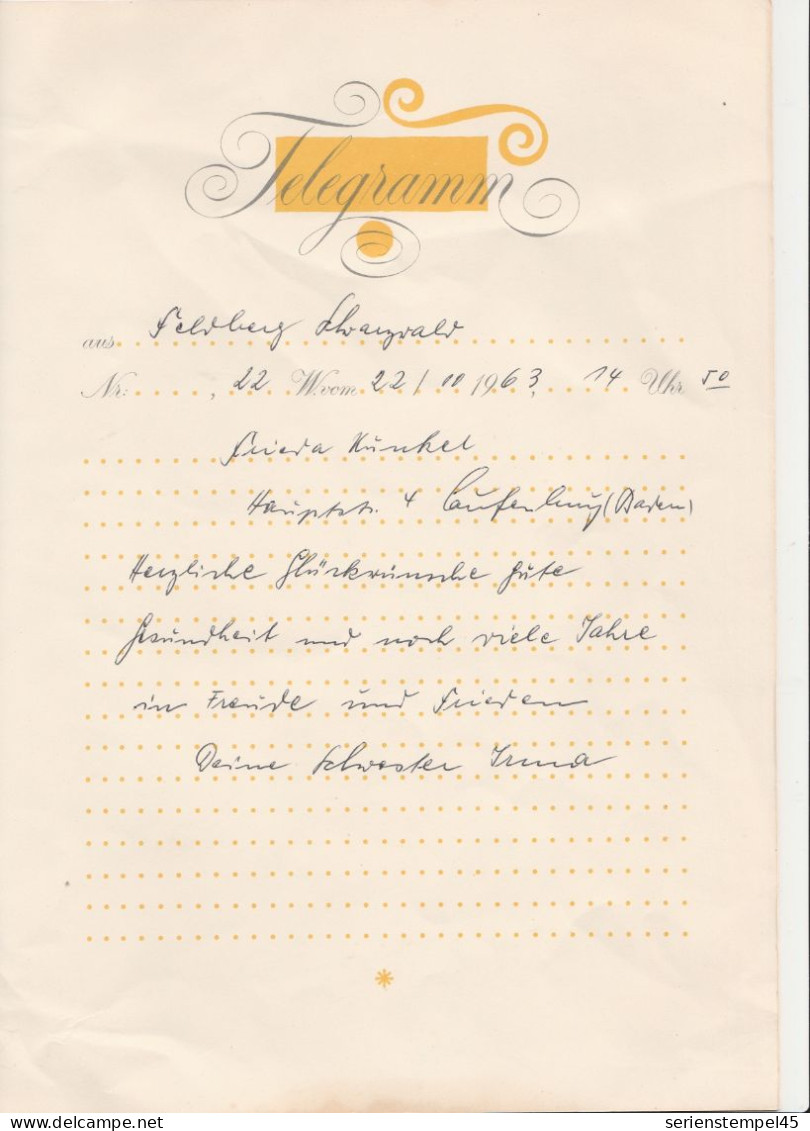 Telegramm
aus Feldberg Schwarzwald
Nr: , 22 W. vom 22/10 1963, 14 Uhr 50
Frieda Künkel
Hauptstr. 4 Laufenburg (Baden)
Herzliche Glückwünsche gute
Gesundheit und noch viele Jahre
in Freude und Frieden
Deine Schwester Irma
www.delcampe.net
serienstempel45